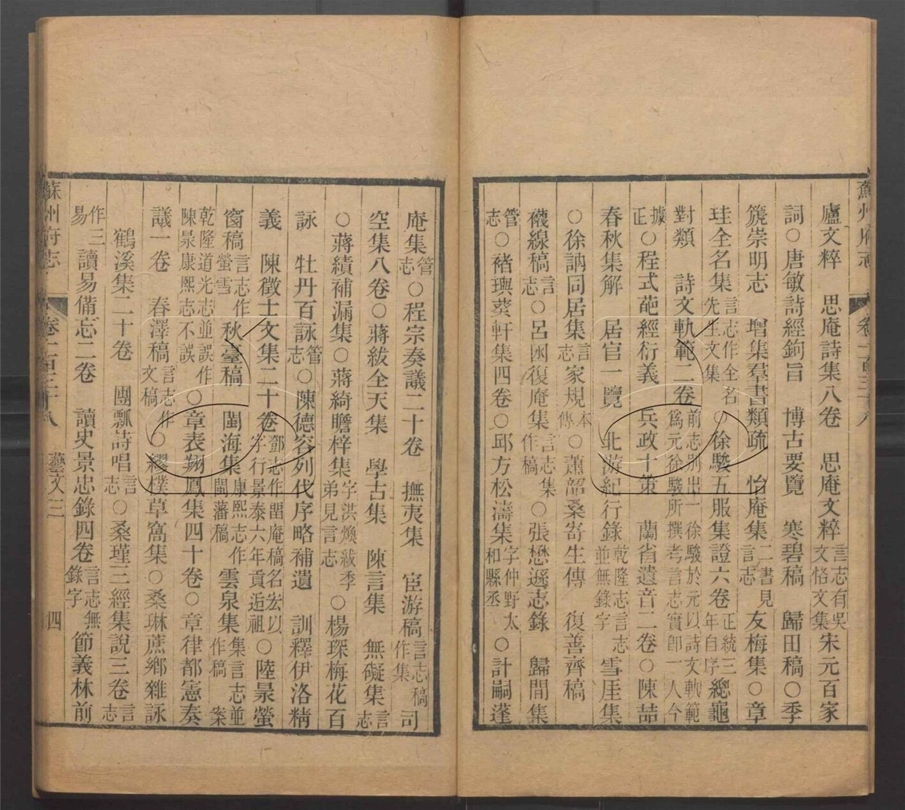 蘇州府志
卷一百三十八
廬文粹 思庵詩集八卷 思庵文粹言志有吳文恪文集宋元百家
詞○唐敏詩經鉤旨 博古要覽 寒碧稿 歸田稿○季
篪崇明志 增集草書類疏 怡庵集二書見言志友梅集○章
珪全名集言志作全名先生文集○徐駿五服集證六卷正統三年自序總龜
對類 詩文軌範二卷前志別出一徐駿於元以詩文軌範爲元徐駿所撰考言志實卽一人今
據正○程式葩經衍義 兵政十策 蘭省遺音二卷○陳喆
春秋集解 居官一覽 北游紀行錄乾隆志言志並無錄字雪厓集
○徐訥同居集言志家規本傳○蕭韶桑寄生傳 復善齊稿
襪線稿言志○呂困復庵集言志集作稿○張懋遜志錄 歸閒集
管志○褚璵葵軒集四卷○邱方松濤集字仲野太和縣丞○計嗣蓬
庵集管志○程宗奏議二十卷 撫夷集 宦游稿言志稿作集司
空集八卷○蔣紱全天集 學古集 陳言集 無礙集言志
○蔣績補漏集○蔣綺瞻梓集字洪煥紱季弟見言志○楊琛梅花百
詠 牡丹百詠管志○陳德容列代序略補遺 訓釋伊洛精
義 陳徵士文集二十卷鄧志作誾庵稿名宏以字行景泰六年貢逅祖○陸㬌螢
窗稿言志作螢雪秋臺稿 閩海集康熙志作閩藩稿雲泉集言志並作稿案
乾隆道光志並誤作陳㬌康熙志不誤○章表翔鳳集四十卷○章律都憲奏
議一卷 春澤稿言志作文稿○繆樸草窩集○桑琳蔗鄉雜詠
鶴溪集二十卷 團瓢詩唱言志○桑瑾三經集說三卷言志
作三易讀易備忘二卷 讀史景忠錄四卷言志無錄字節義林前
蘇州府志
卷一百三十八
藝文三
四